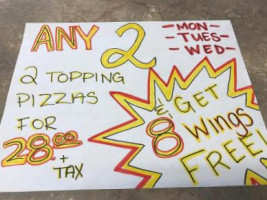 ANY 2
-MON-
-TUES-
-WED-
2 TOPPING
PIZZAS
FOR
28.00
+
TAX
& GET
8 WINGS
FREE!